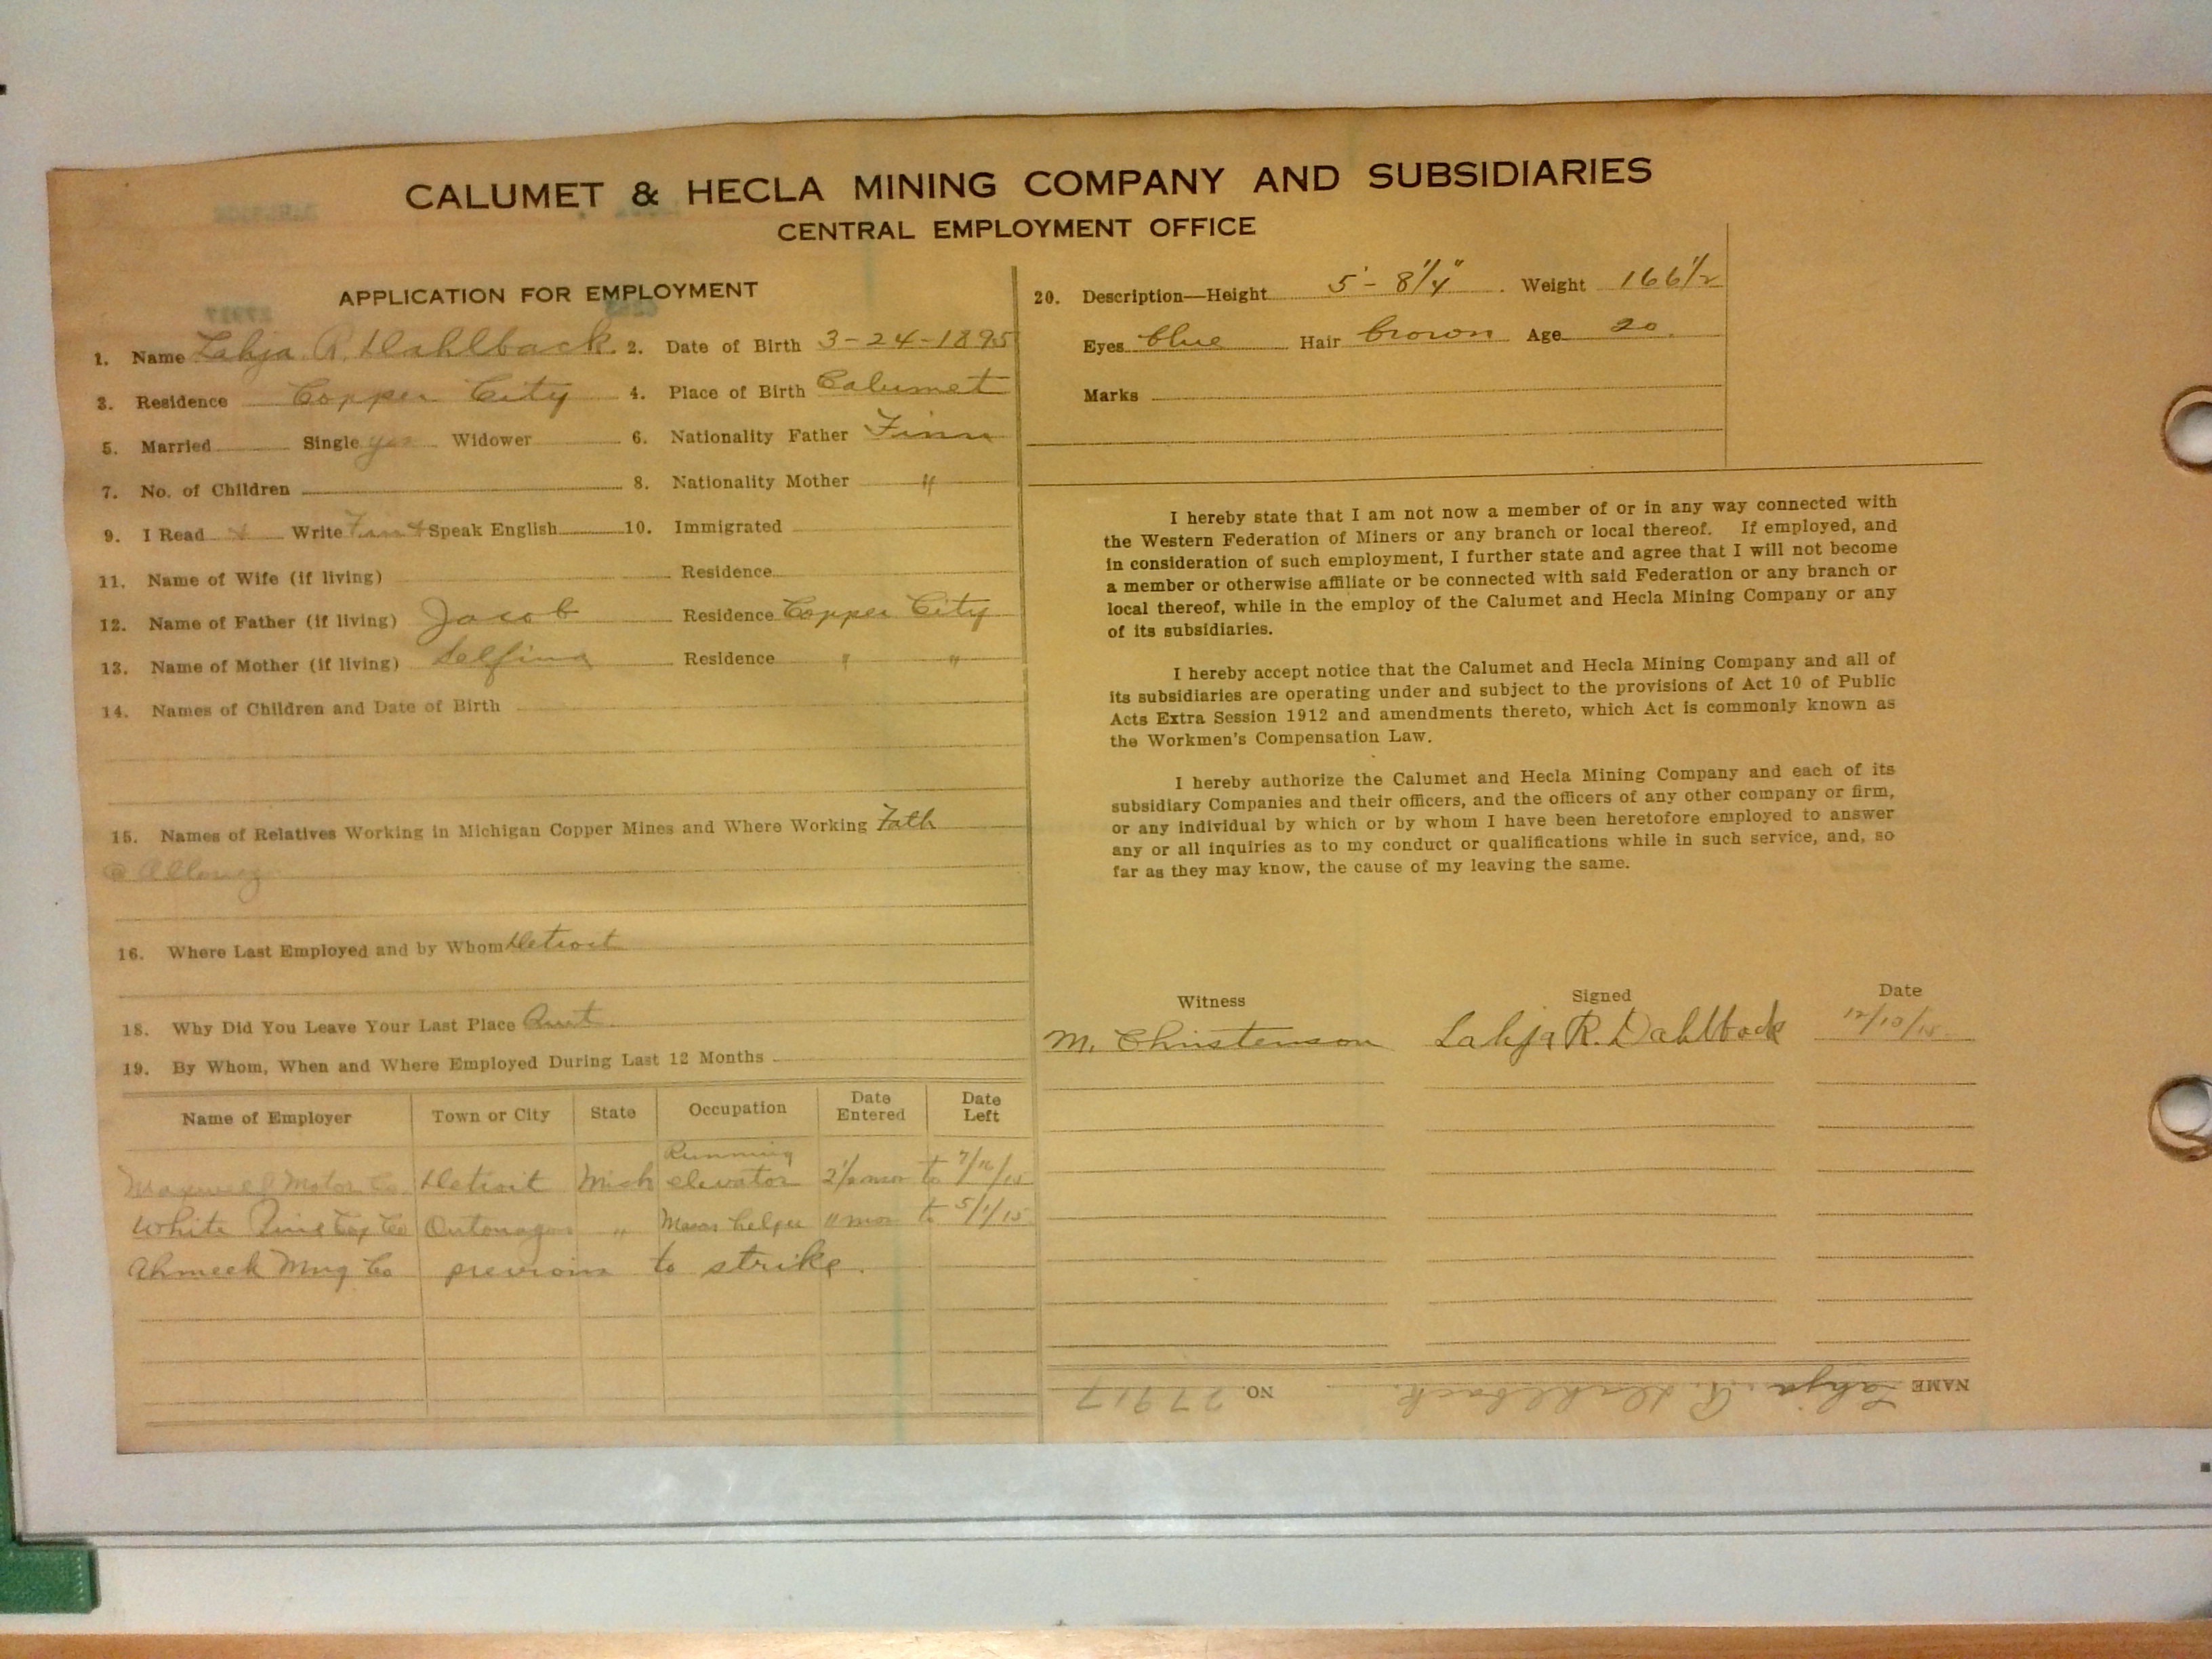 CALUMET & HECLA MINING COMPANY AND SUBSIDIARIES
CENTRAL EMPLOYMENT OFFICE
APPLICATION FOR EMPLOYMENT
1. Name Lahja R. Dahlback. 2. Date of Birth 3-24-1895
3. Residence Copper City 4. Place of Birth Calumet
5. Married Single yes Widower 6. Nationality Father Finn
7. No. of Children 8. Nationality Mother "
9. I Read & Write Finn & Speak English 10. Immigrated
11. Name of Wife (if living) Residence
12. Name of Father (if living) Jacob Residence Copper City
13. Name of Mother (if living) Delfina Residence " "
14. Names of Children and Date of Birth
15. Names of Relatives Working in Michigan Copper Mines and Where Working Fath
@ Allouez
16. Where Last Employed and by Whom Detroit
18. Why Did You Leave Your Last Place Quit
19. By Whom, When and Where Employed During Last 12 Months
Name of Employer Town or City State Occupation Date Entered Date Left
Maxwell Motor Co. Detroit Mich Running elevator 2 1/2 mos to 7/16/15
White Pine Cop Co Ontonagon " Mason helper 11 mos to 5/1/15
Ahmeek Mng Co previous to strike.
20. Description—Height 5'-8 1/4" Weight 166 1/2
Eyes blue Hair brown Age 20
Marks
I hereby state that I am not now a member of or in any way connected with
the Western Federation of Miners or any branch or local thereof. If employed, and
in consideration of such employment, I further state and agree that I will not become
a member or otherwise affiliate or be connected with said Federation or any branch or
local thereof, while in the employ of the Calumet and Hecla Mining Company or any
of its subsidiaries.
I hereby accept notice that the Calumet and Hecla Mining Company and all of
its subsidiaries are operating under and subject to the provisions of Act 10 of Public
Acts Extra Session 1912 and amendments thereto, which Act is commonly known as
the Workmen's Compensation Law.
I hereby authorize the Calumet and Hecla Mining Company and each of its
subsidiary Companies and their officers, and the officers of any other company or firm,
or any individual by which or by whom I have been heretofore employed to answer
any or all inquiries as to my conduct or qualifications while in such service, and, so
far as they may know, the cause of my leaving the same.
Witness Signed Date
M. Christenson Lahja R. Dahlback 12/10/15
NAME Lahja R. Dahlback. NO. 27917